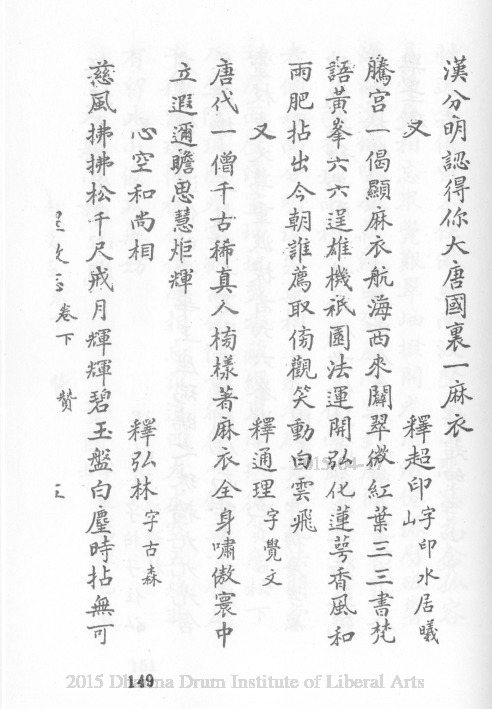 漢分明認得你大唐國裏一麻衣
又 釋超印字印水居曦山
騰宮一偈顯麻衣航海西來闢翠微紅葉三三書梵
語黃峯六六逞雄機祇園法運開弘化蓮萼香風和
雨肥拈出今朝誰薦取傍觀笑動白雲飛
又 釋通理字覺文
唐代一僧千古稀真人榜樣著麻衣全身嘯傲寰中
立遐邇瞻思慧炬輝
心空和尚相 釋弘林字古森
慈風拂拂松千尺戒月輝輝碧玉盤白麈時拈無可
卷下 贊
149
2015 Dharma Drum Institute of Liberal Arts